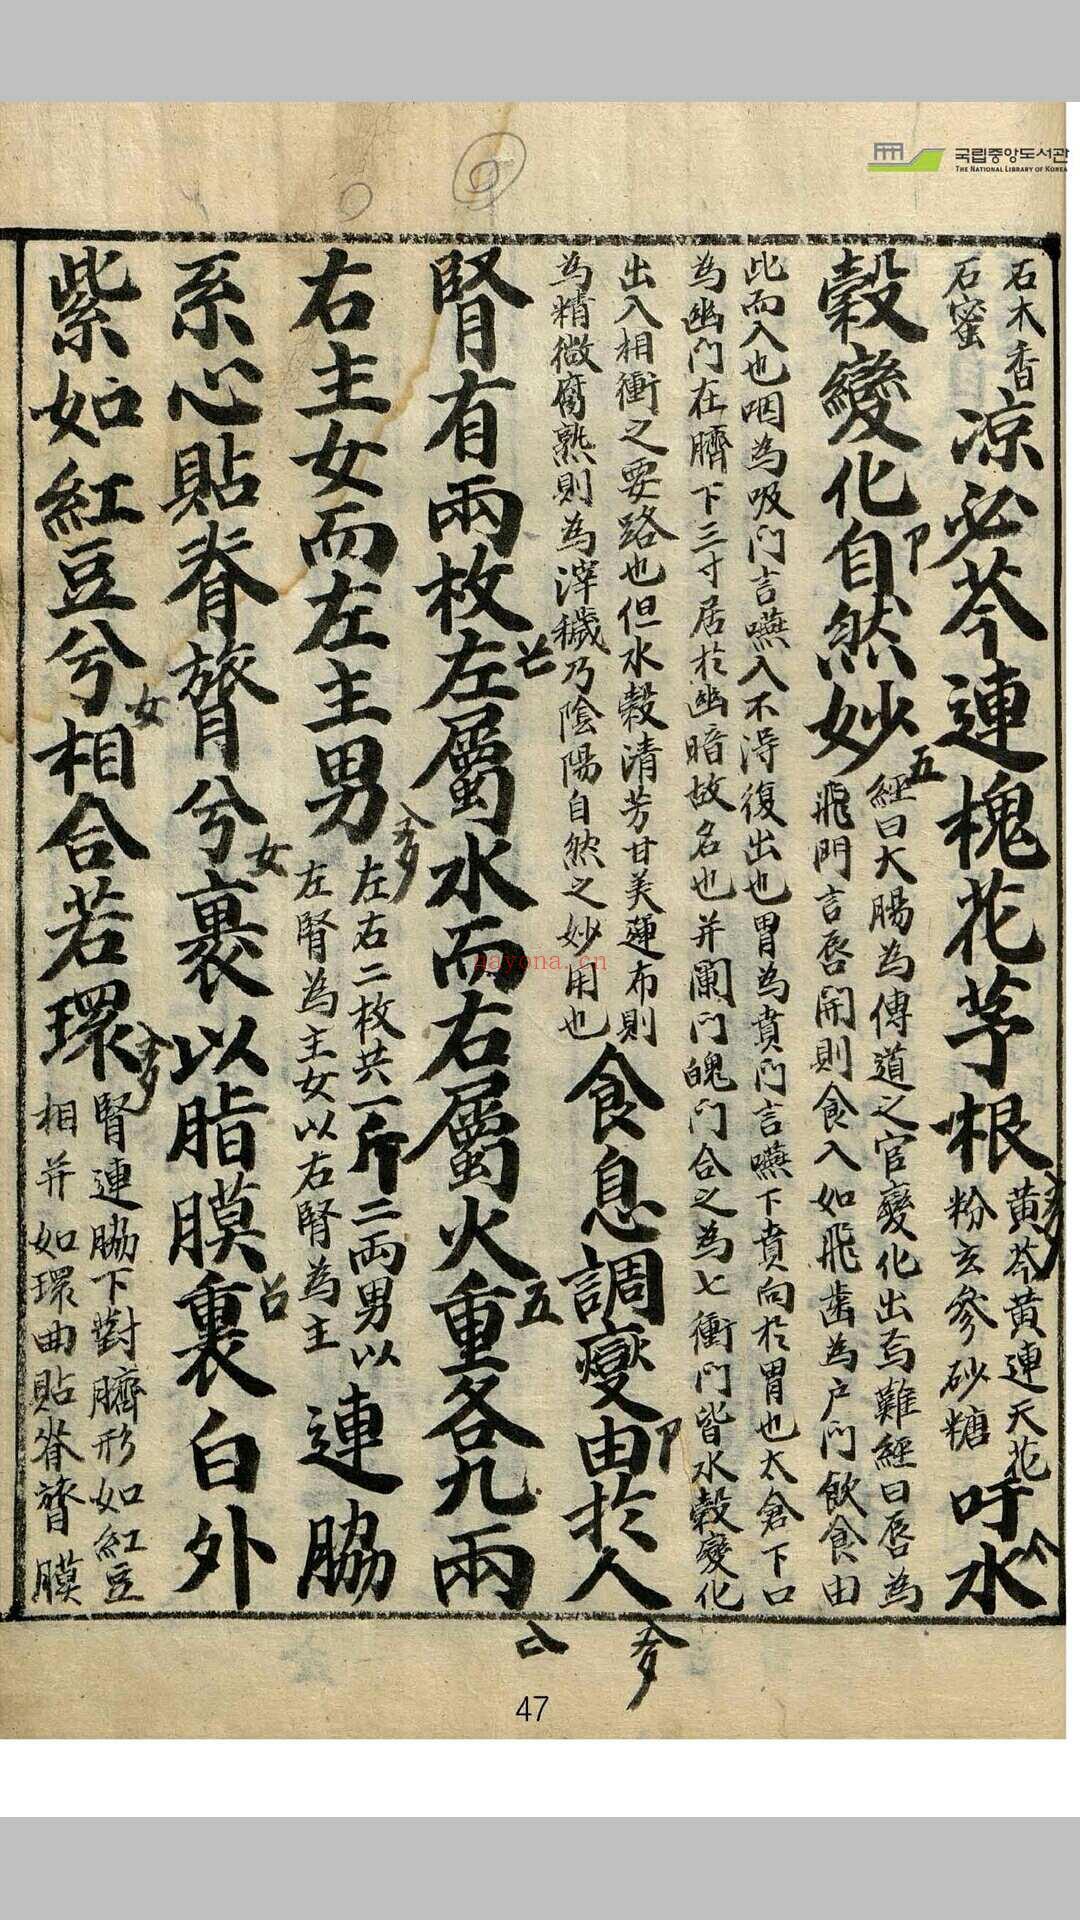 국립중앙도서관
THE NATIONAL LIBRARY OF KOREA
石木香
石蜜
凉必芩連槐花芓根
黃芩黃連天花
粉玄參砂糖
吁水
穀變化自然妙
經曰大腸為傳道之官變化出焉難經曰唇為
飛門言唇開則食入如飛齒為户門飲食由
此而入也咽為吸門言嚥入不淂復出也胃為賁門言嚥下賁向於胃也太倉下口
為幽門在臍下三寸居於幽暗故名也并闌門魄門合之為七衝門皆水穀變化
出入相衝之要路也但水穀清芳甘美運布則
為精微腐熟則為滓穢乃陰陽自然之妙用也
食息調燮由於人
腎有兩枚左屬水而右屬火重各九兩
右主女而左主男
左右二枚共一斤二兩男以
左腎為主女以右腎為主
連脇
系心貼脊膂兮裹以脂膜裏白外
紫如紅豆兮相合若環
腎連脇下對臍形如紅豆
相并如環曲貼脊膂膜
4ayona.cn
47